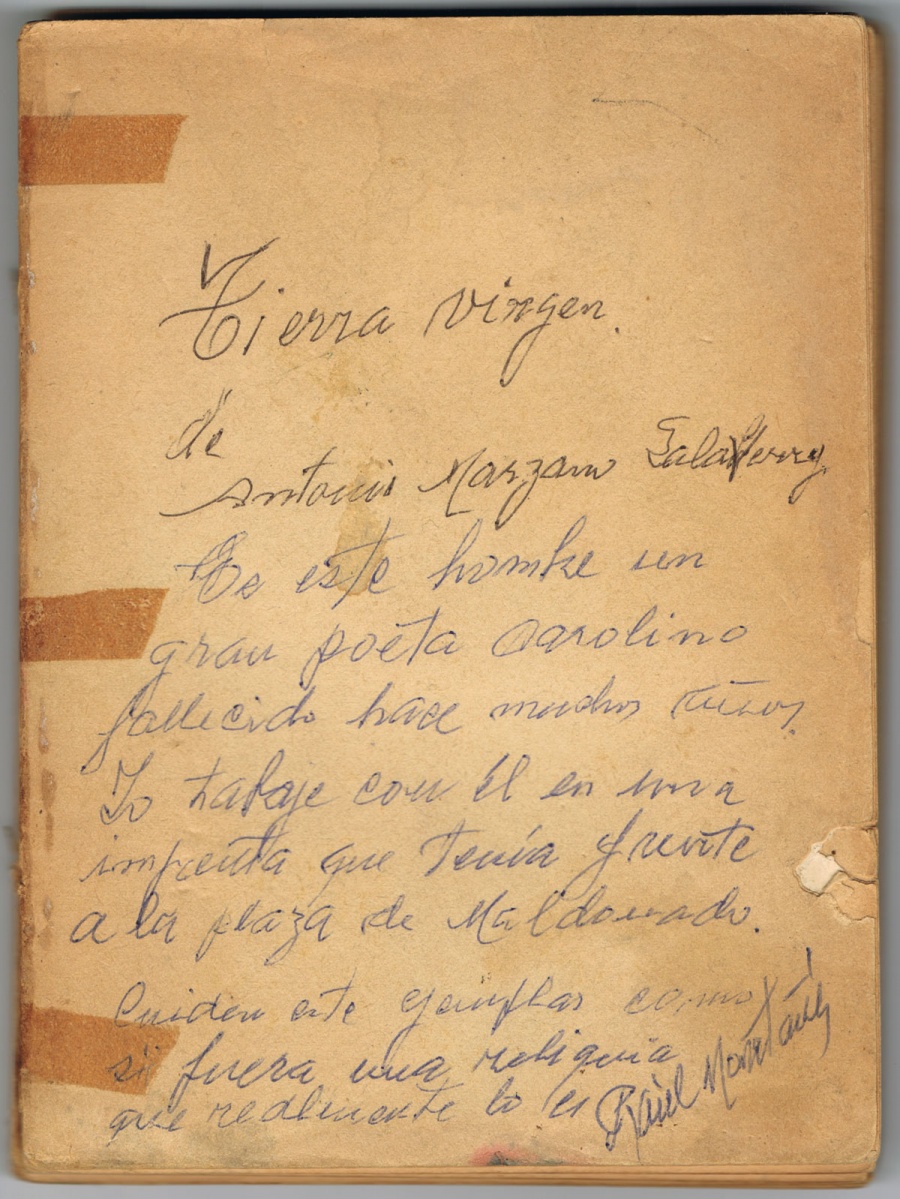 Tierra virgen.
de
Antonio Marzano
Es este hombre un
gran poeta Carolino
fallecido hace muchos años.
Yo trabaje con él en una
imprenta que tenía frente
a la plaza de Maldonado.
Cuiden este ejemplar como
si fuera una reliquia
que realmente lo es
Raúl Montañés